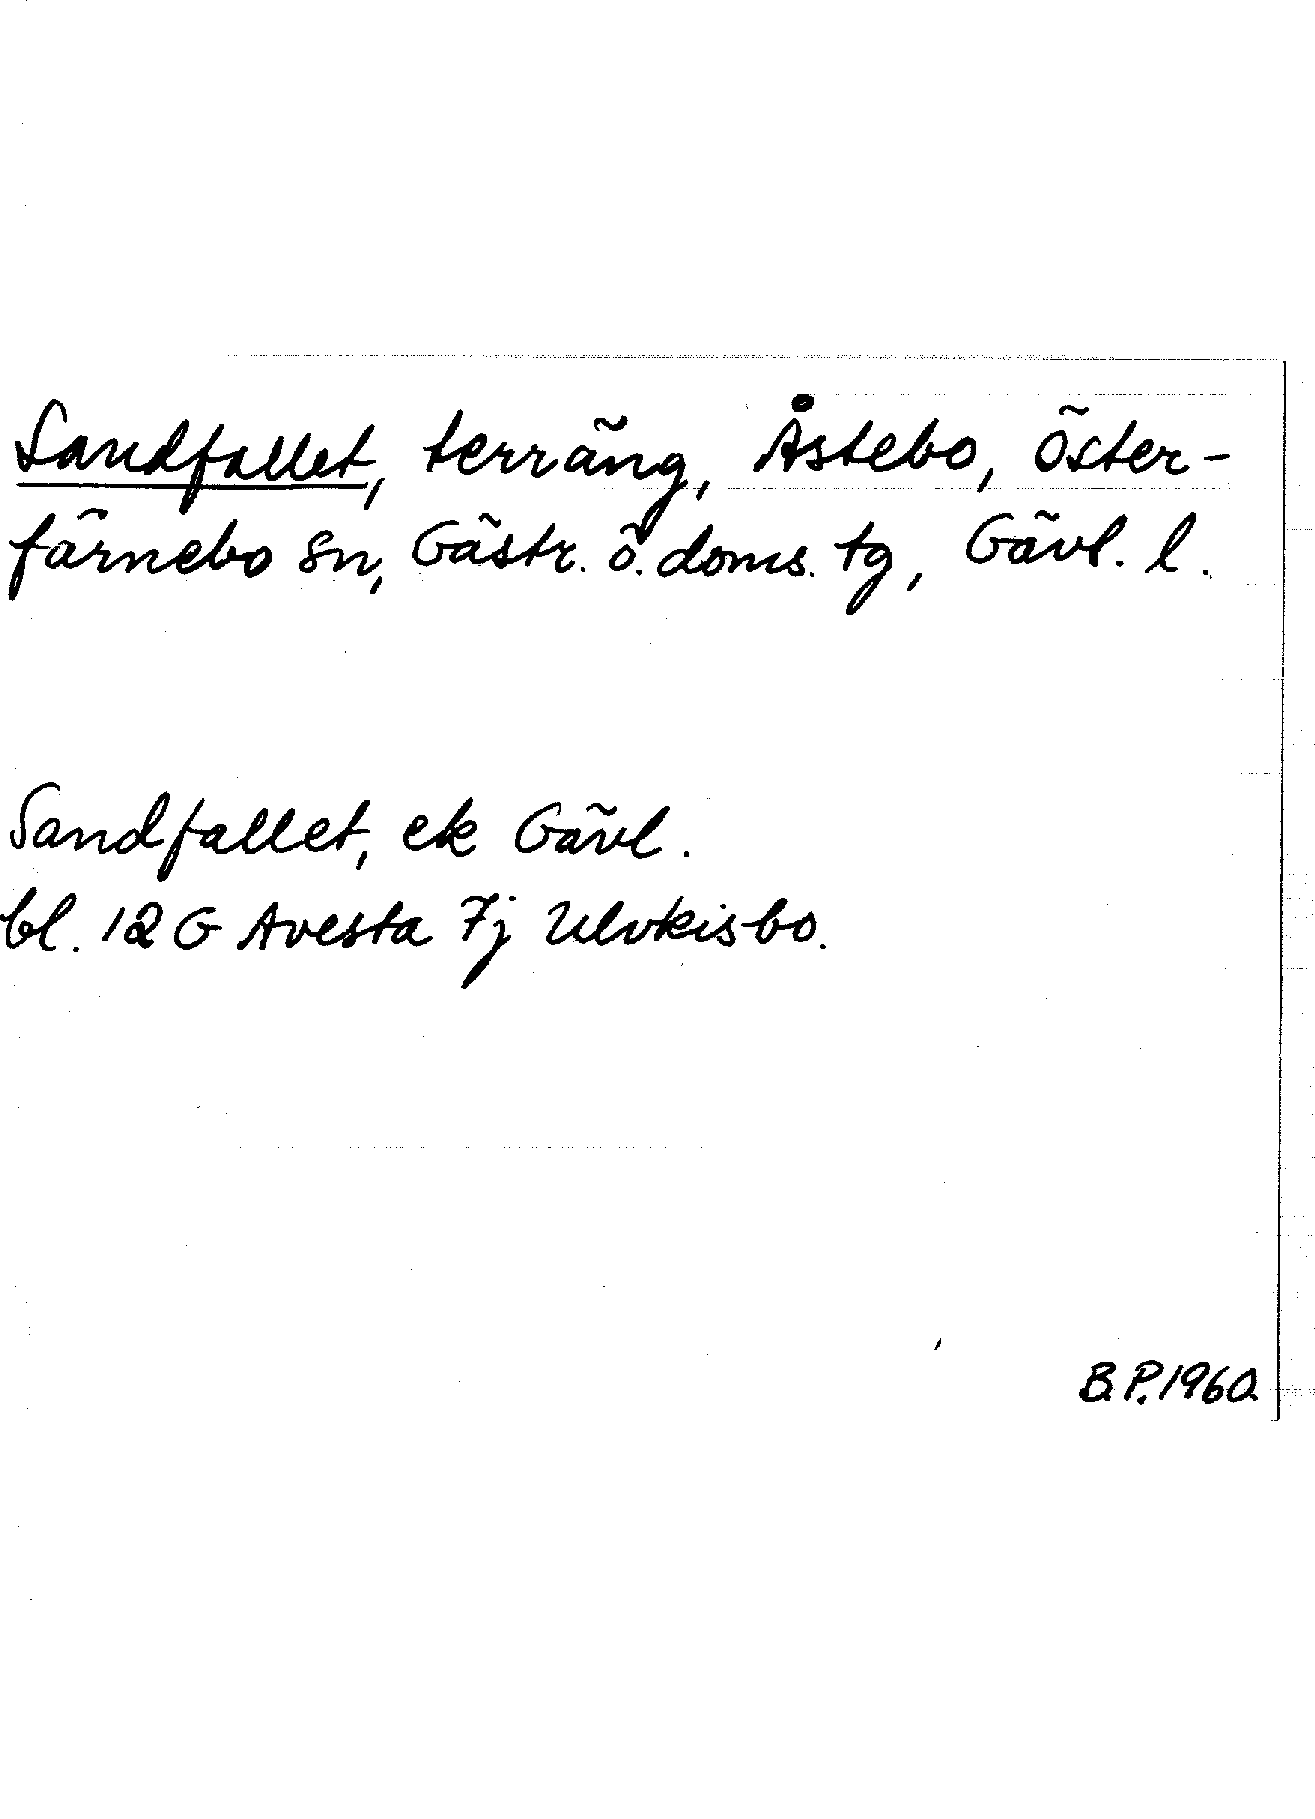 Sandfallet, terräng, Åstebo, Öster-
färnebo sn, Gästr. ö. doms. tg, Gävl. l.
Sandfallet, ek Gävl.
bl. 12 G Avesta 7j Ulvkisbo.
B.P.1960.